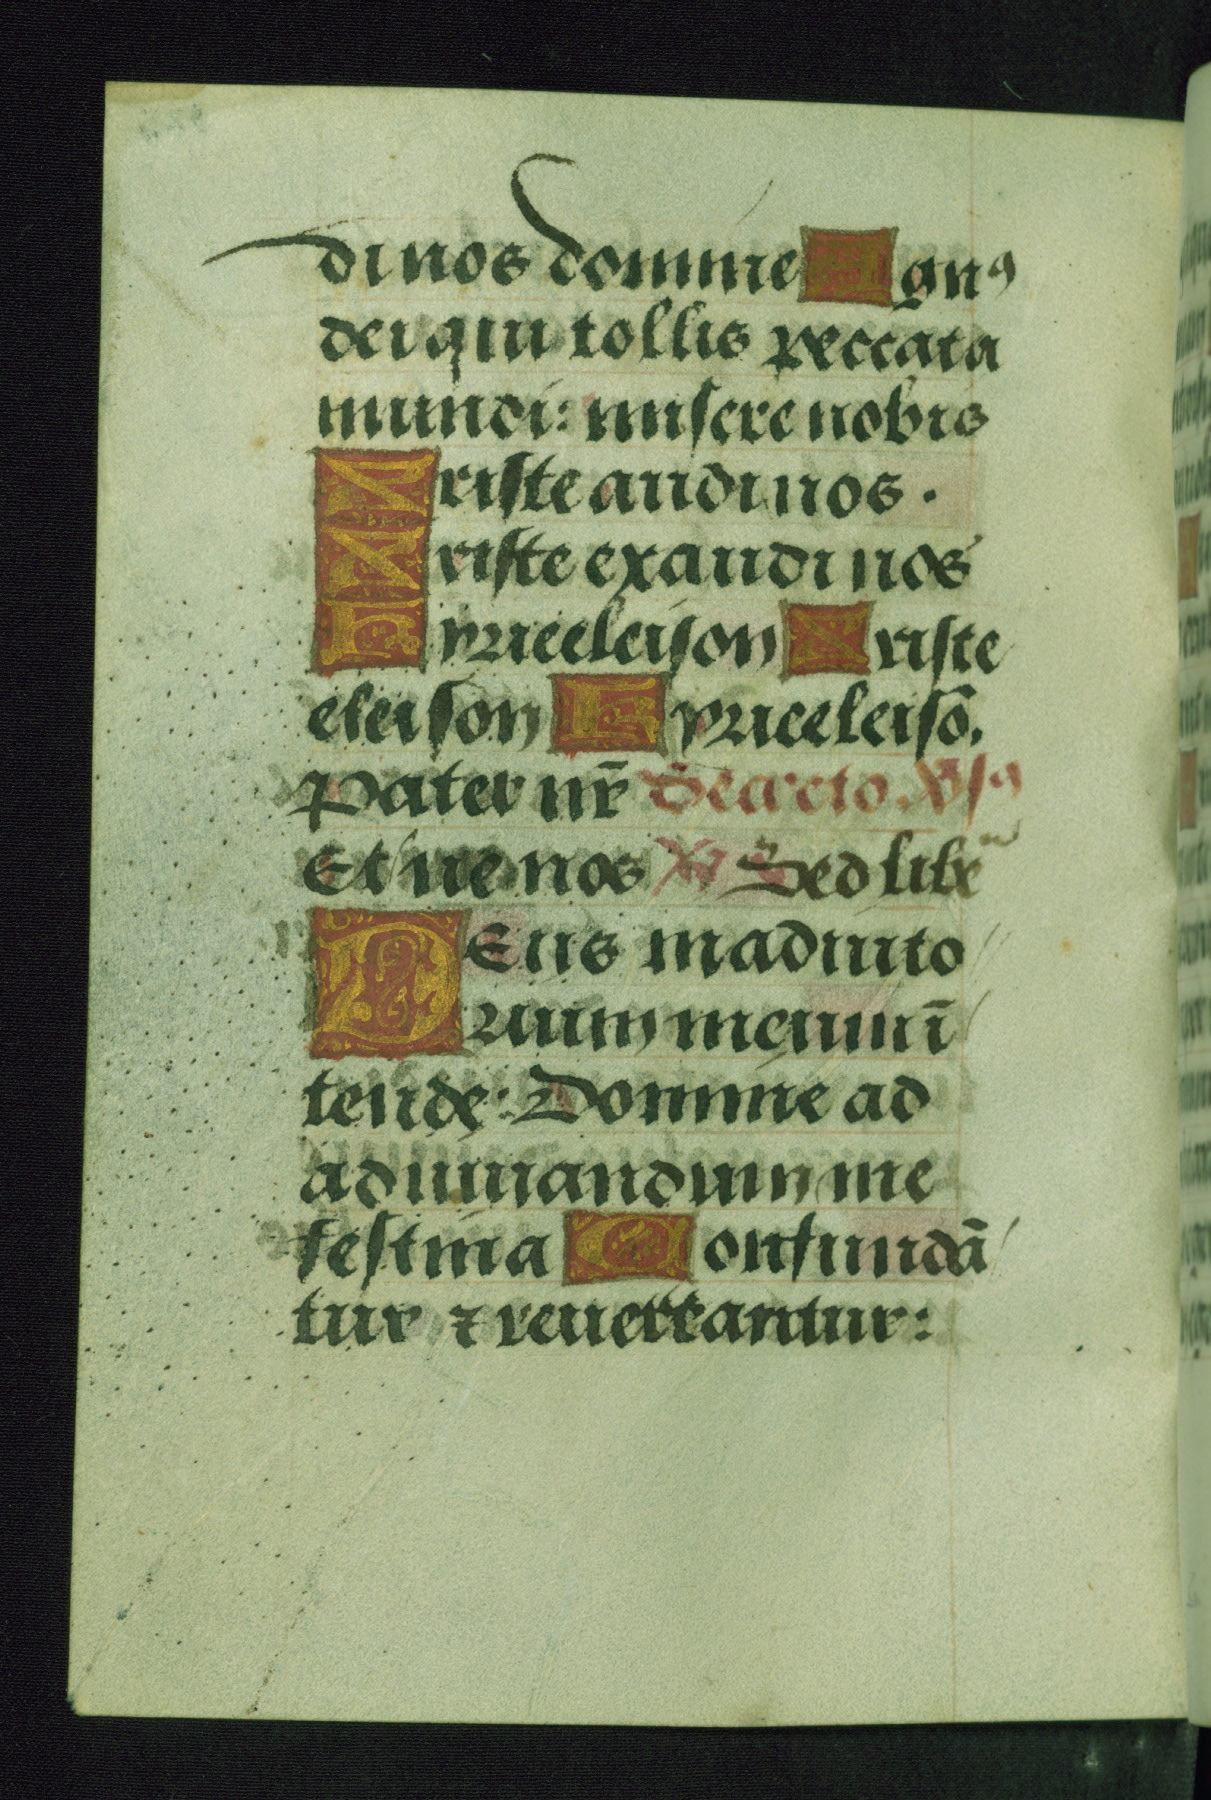 di nos domine Agnꝰ
dei qui tollis peccata
mundi: misere nobis
Xriste audi nos.
Xriste exaudi nos
Kyrieeleison Xriste
eleison Kyrieeleisō.
Pater nr̄
Et ne nos Sed lib
Deus in adiuto
rium meum ī
tende: Domine ad
adiuuandum me
festina Confundā
tur ⁊ reuertantur: